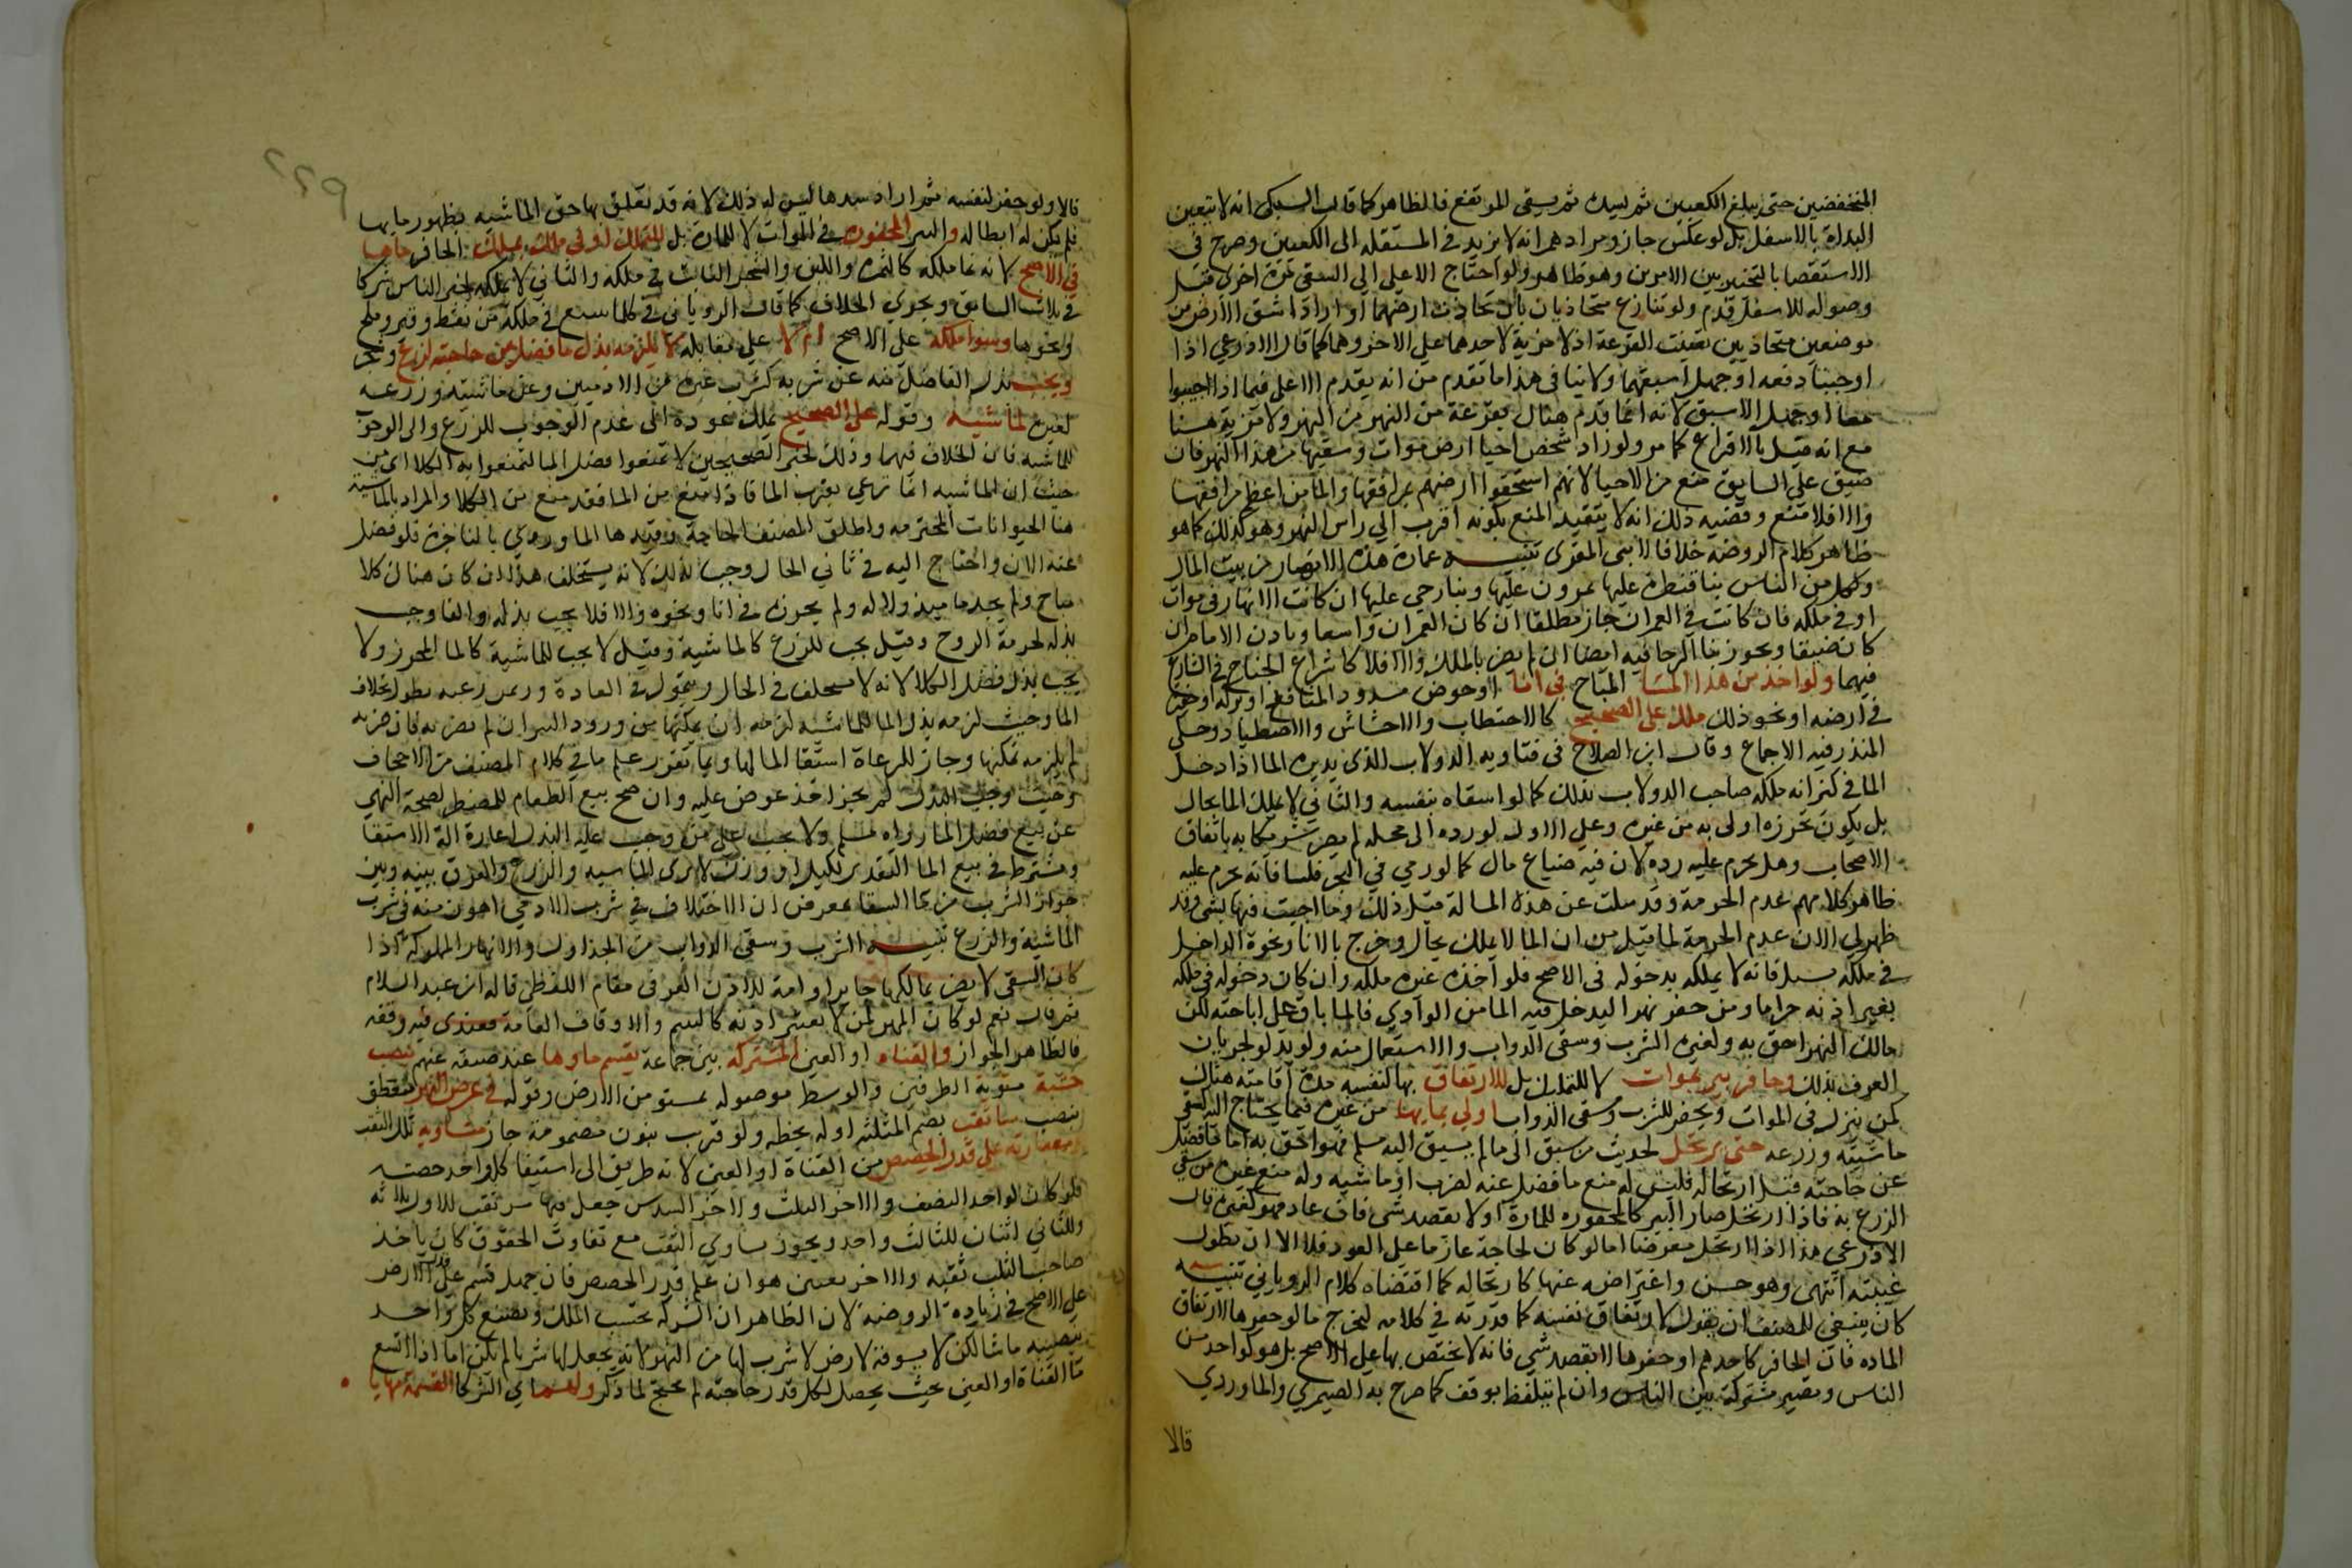 المنخفضين حتى يبلغ الكعبين ثم يسد ثم يسقى المرتفع فالظاهر كما قاله السبكى انه لا يتعين
البداة بالاسفل بل لو عكس جاز ومرادهم انه لا يزيد في المستقله الى الكعبين وصرح فى
الاستقصا بالتخيير بين الامرين وهو ظاهر ولو احتاج الاعلى الى السقى مرة اخرى قبل
وصوله للاسفل قدم ولو تنازع متحاذيان بان تحاذت ارضهما او ارادا شق الارض من
موضعين متحاذيين تعينت القرعة اذ لا مزية لاحدهما على الاخر وهما كما قال الاذرعي اذا
احييا دفعه او جهل اسبقهما ولا ينافى هذا ما تقدم من انه يقدم الاعلى فيما اذا احيوا
معا او جهل الاسبق لانه انما قدم هناك بقربه من النهر ولا مزية هنا
مع انه قيل بالاقراع كما مر ولو زاد شخص احيا ارض موات وسقيها من هذا النهر فان
ضيق على السابق منع من الاحيا لانهم استحقوا ارضهم بمرافقها والما من اعظم مرافقها
والا فلا منع وقضيه ذلك انه لا يتقيد المنع بكونه اقرب الى راس النهر وهو كذلك كما هو
ظاهر كلام الروضة خلافا لابن المقرى تنبيه عمارة هذه الانهار من بيت المال
ولكل من الناس بنا قنطرة عليها يمرون عليها وبنا رحى عليها ان كانت الانهار فى موات
او فى ملكه فان كانت في العمران جاز مطلقا ان كان العمران واسعا وباذن الامام ان
كان ضيقا ويجوز بنا الرحا فيه ايضا ان لم يضر بالملاك والا فلا كاشراع الجناح فى الشارع
فيهما ولو اخذ من هذا الماء المباح في انا او حوض مسدود المنافذ او بركة او حفرة
في ارضه او نحو ذلك ملك على الصحيح كالاحتطاب والاحتشاش والاصطياد وحكى
المنذر فيه الاجماع وقال ابن الصلاح فى فتاويه الدولاب الذى يديره الما اذا دخل
الما فى كيزانه ملكه صاحب الدولاب بذلك كما لو استقاه بنفسه والثاني لا يملك الما بحال
بل يكون محرزه اولى به من غيره وعلى الاول لو رده الى محله لم يصر شريكا به باتفاق
الاصحاب وهل يحرم عليه رده لان فيه ضياع مال كما لو رمي في البحر فلسا فانه يحرم عليه
ظاهر كلامهم عدم الحرمة وقد سئلت عن هذه المسالة قبل ذلك وما اجبت فيها بشى وقد
ظهر لي الان عدم الحرمة لما قيل من ان الما لا يملك بحال وخرج بالانا ونحوه الداخل
في ملكه بسيل فانه لا يملكه بدخوله فى الاصح فلو اخذه غيره ملكه وان كان دخوله في ملكه
بغير اذنه حراما ومن حفر نهرا ليدخل فيه الما من الوادي فالما باق على اباحته لكن
مالك النهر احق به ولغيره الشرب وسقى الدواب والاستعمال منه ولو بدلو لجريان
العرف بذلك وحافر بير بموات لا للتملك بل للارتفاق بها لنفسه مدة اقامته هناك
كمن ينزل فى الموات ويحفر للشرب وسقى الدواب اولي بمايها من غيره فيما يحتاج اليه لسقي
ماشيته وزرعه حتى يرتحل لحديث من سبق الى ما لم يسبق اليه مسلم فهو احق به اما ما فضل
عن حاجته قبل ارتحاله فليس له منع ما فضل عنه لشرب او ماشيه وله منع غيره من سقى
الزرع به فاذا ارتحل صار البير كالمحفوره للمارة او لا بقصد شى فان عاد فهو كغيره قال
الاذرعي هذا اذا ارتحل معرضا اما لو كان لحاجة عازما على العود فلا الا ان تطول
غيبته انتهى وهو حسن واعتراضه عنها كارتحاله كما اقتضاه كلام الروياني تنبيه
كان ينبغي للمصنف ان يقول لارتفاق نفسه كما قدرته في كلامه ليخرج ما لو حفرها لارتفاق
الماره فان الحافر كاحدهم او حفرها لا بقصد شي فانه لا يختص بها على الاصح بل هو كواحد من
الناس وتصير مشتركة بين الناس وان لم يتلفظ بوقف كما صرح به الصيمري والماوردي
قالا
٢٢٩
قالا ولو حفر لنفسه ثم اراد سدها ليس له ذلك لانه قد تعلق بها حق الماشيه بظهور مايها
فلم يكن له ابطاله والبير المحفورة في الموات لا للمارة بل للتملك او في ملك يملك الحافر ماءها
في الاصح لانه نما ملكه كالثمره واللبن والشجر النابت في ملكه والثاني لا يملكه لخبر الناس شركا
في ثلاث السابق ويجري الخلاف كما قال الروياني فى كلما ينبع في ملكه من نفط وقير وملح
ونحوها وسوا ملكه على الاصح ام لا على مقابله لا يلزمه بذل ما فضل عن حاجته لزرع وشجر
ويجب بذل الفاضل منه عن شربه كشرب غيره من الادميين وعن ماشيته وزرعه
لغيره لماشيه وقوله على الصحيح يملك عوده الى عدم الوجوب للزرع والى الوجوب
للماشيه فان الخلاف فيهما وذلك لخبر الصحيحين لا تمنعوا فضل الما لتمنعوا به الكلا اى من
حيث ان الماشيه انما ترعى بقرب الما فاذا منع من الما فقد منع من الكلا والمراد بالماشية
هنا الحيوانات المحترمه واطلق المصنف الحاجة وقيدها الماوردي بالناجزة فلو فضل
عنه الان واحتاج اليه في ثاني الحال وجب بذله لانه يستخلف هذا ان كان هناك كلا
مباح ولم يجد ما مبذولا له ولم يحرزه في انا ونحوه والا فلا يجب بذله وانما وجب
بذله لحرمة الروح وقيل يجب للزرع كالماشية وقيل لا يجب للماشية كالما المحرز ولا
يجب بذل فضل الكلا لانه لا يستخلف في الحال ويتمول في العادة وزمن رعيه يطول بخلاف
الما وحيث لزمه بذل الما للماشيه لزمه ان يمكنها من ورود البير ان لم يضر به فان ضر به
لم يلزمه تمكينها وجاز للرعاة استقا الما لها وبما تقرر علم ما في كلام المصنف من الاجحاف
وحيث وجب البذل لم يجز اخذ عوض عليه وان صح بيع الطعام للمضطر لصحة النهي
عن بيع فضل الما رواه مسلم ولا يجب على من وجب عليه البذل اعارة الة الاستقا
ويشترط في بيع الما التقدير بكيل او وزن لا برى الماشيه والزرع والفرق بينه وبين
جواز الشرب من ما السقا بعوض ان الاختلاف في شرب الادمي اهون منه في شرب
الماشية والزرع تنبيه الشرب وسقى الدواب من الجداول والانهار المملوكه اذا
كان السقى لا يضر بمالكها جايز اقامة للاذن العرفى مقام اللفظي قاله ابن عبد السلام
ثم قال نعم لو كان النهر لمن لا يعتبر اذنه كاليتيم والاوقاف العامة فعندى فيه وقفه
فالظاهر الجواز والقناه او العين المشتركه بين جماعة يقسم ماوها عند ضيقه عنهم بنصب
خشبة مستوية الطرفين والوسط موصوله بمستو من الارض وقوله في عرض النهر متعلق
بنصب ساتقب بضم المثلثه اوله بخطه ولو قرب بنون مضمومة جاز متساويه تلك الثقب
او متفاوته على قدر الحصص من القناة او العين لانه طريق الى استيفا كل واحد حصته
فلو كان لواحد النصف والاخر الثلث والاخر السدس جعل فيها ست ثقب للاول ثلاثه
وللثاني اثنان للثالث واحد ويجوز تساوي الثقب مع تفاوت الحقوق كان ياخذ
صاحب الثلث ثقبه والاخر نصفين هو ان علم قدر الحصص فان جهل قسم على قدر الارض
على الاصح في زيادة الروضة لان الظاهر ان الشركه بحسب الملك ويصنع كل واحد
بنصيبه ما شا لكن لا يسوقه لارض لا شرب لها من النهر لانه يجعل لها شربا لم يكن اما اذا اتسع
ما القناة او العين بحيث يحصل لكل قدر حاجته لم يحتج لما ذكر ولهم اي الشركا القسمة مهاياة